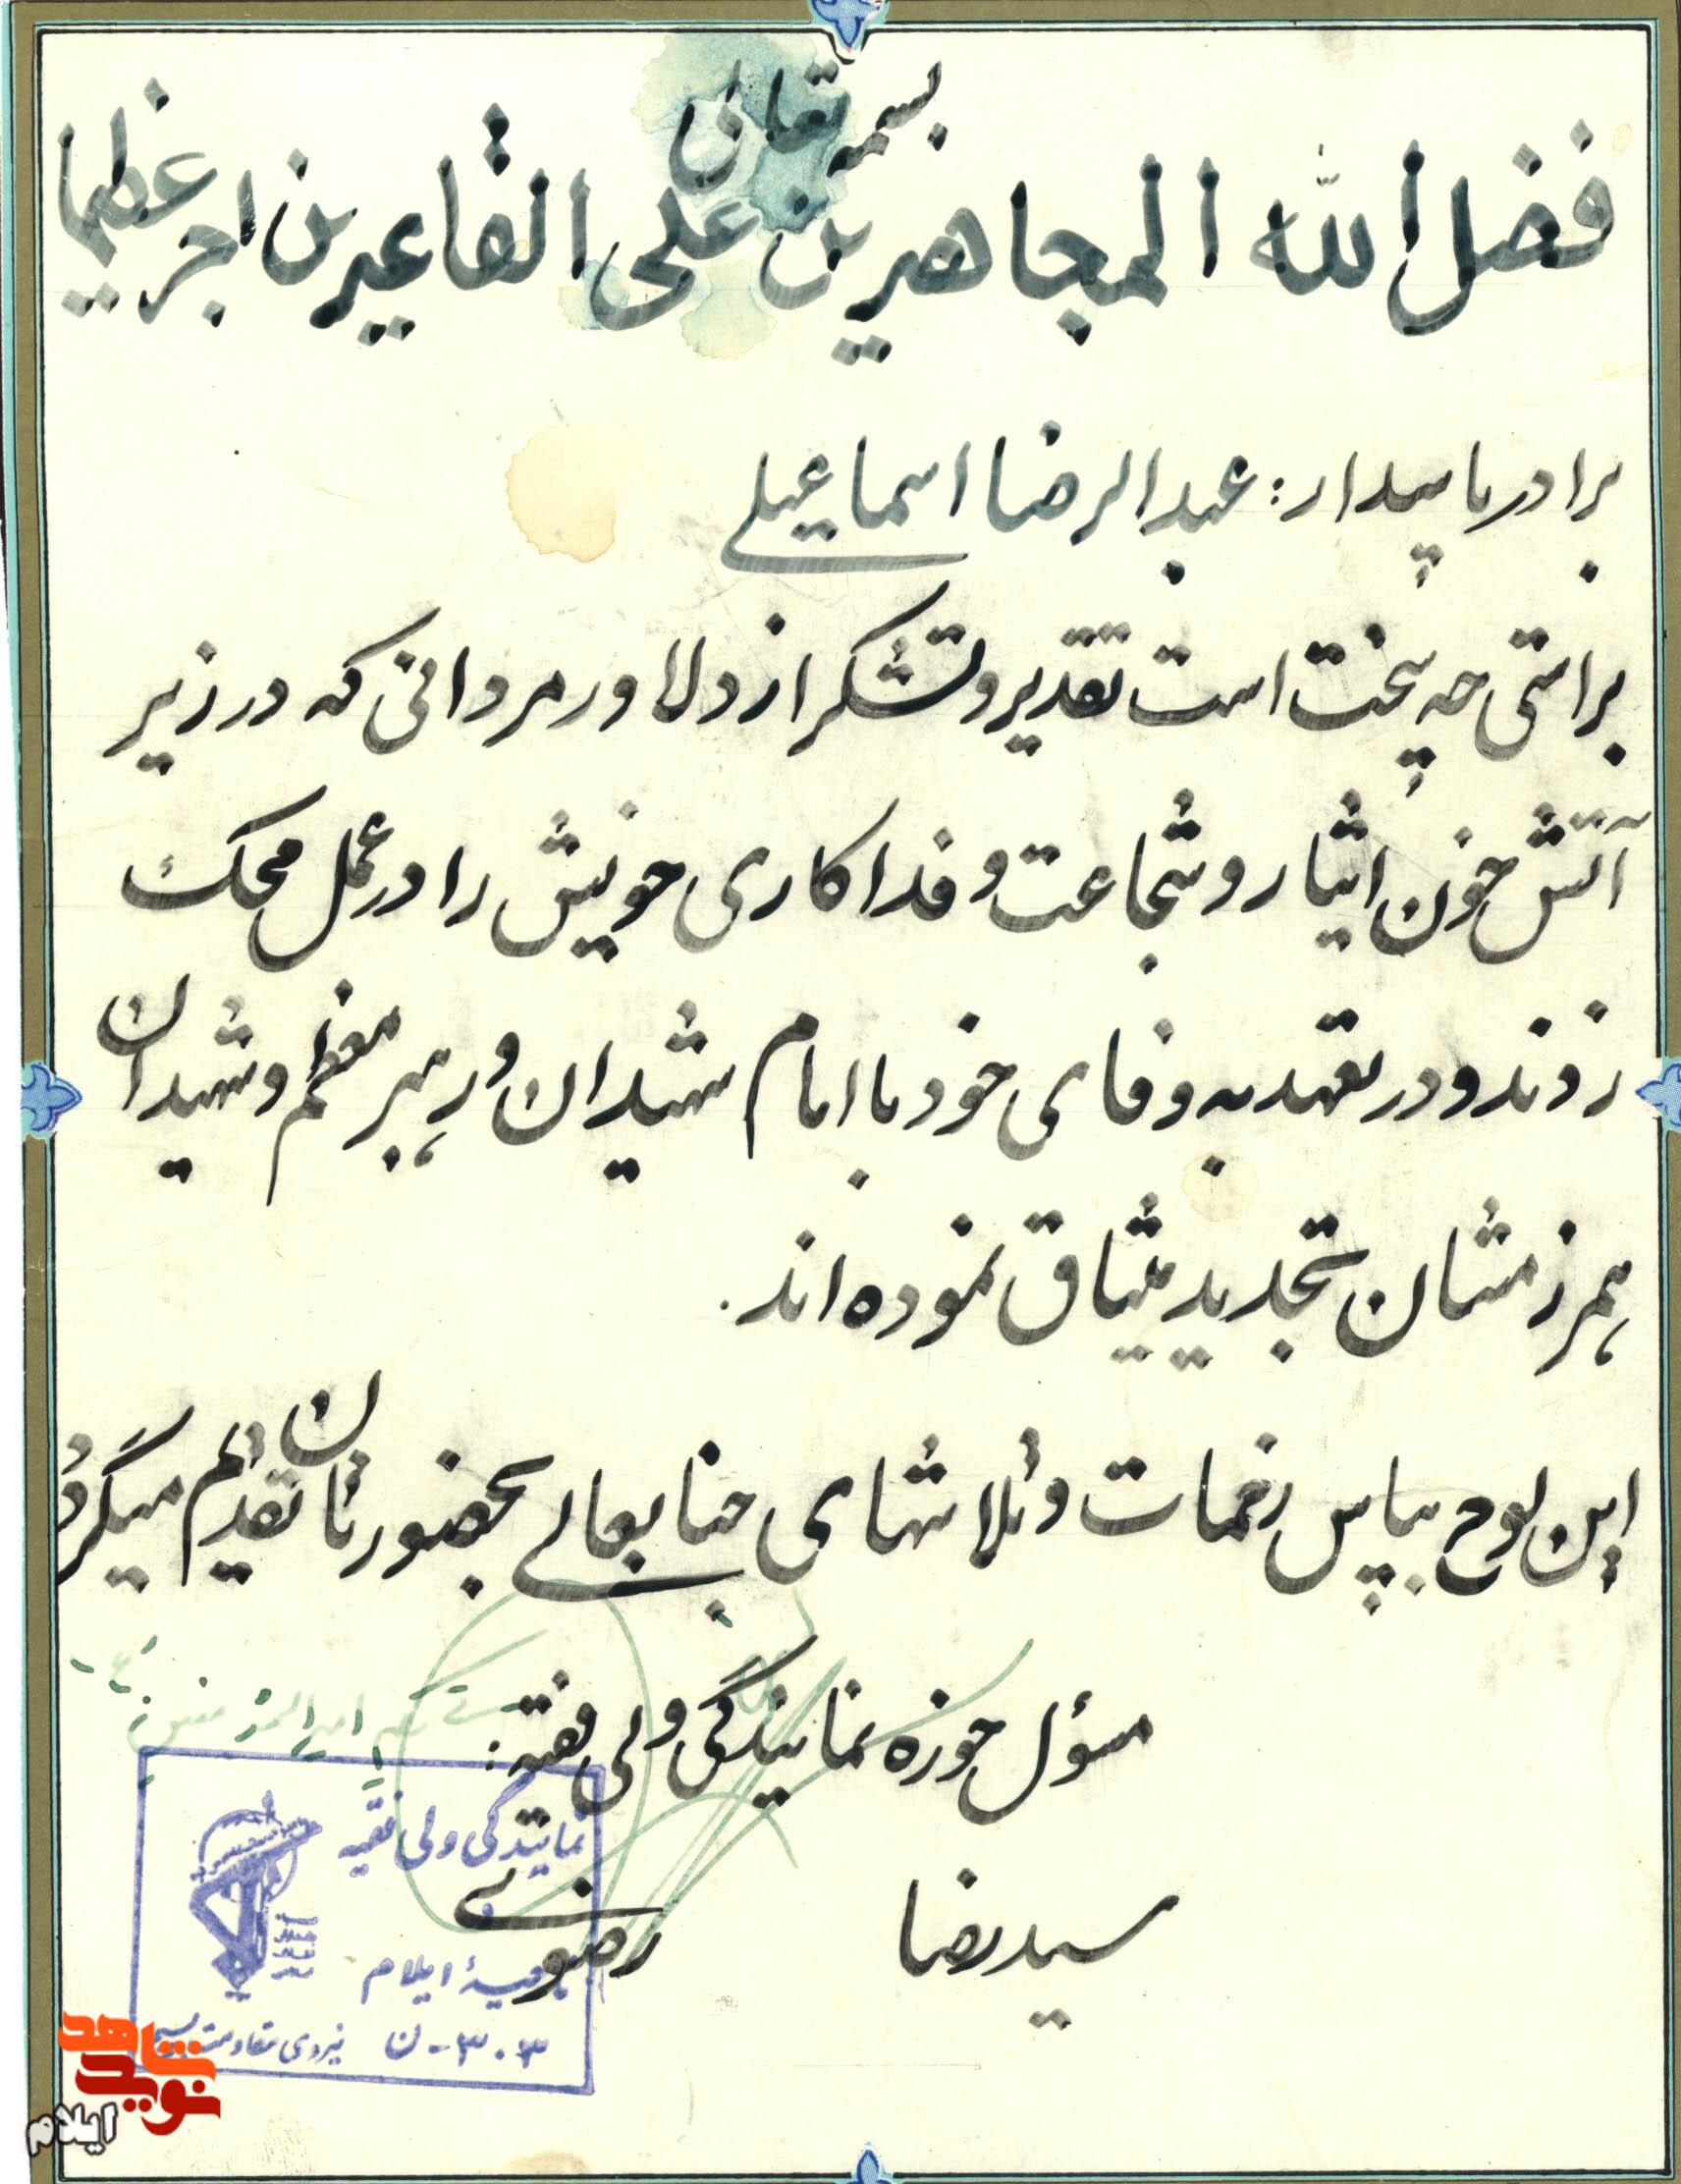 بسمه تعالی
فضل الله المجاهدین علی القاعدین اجر عظیما
برادر پاسدار: عبدالرضا اسماعیلی
براستی چه سخت است تقدیر و تشکر از دلاور مردانی که در زیر
آتش خون ایثار و شجاعت و فداکاری خویش را در عمل محک
زدند و در تعهد به وفای خود با امام شهیدان و رهبر معظم و شهیدان
همرزمشان تجدید میثاق نموده اند.
این لوح بپاس زحمات و تلاشهای جنابعالی بحضورتان تقدیم میگردد
مسؤل حوزه نمایندگی ولی فقیه:
امیرالمؤمنین (ع)
سیدرضا رضوی
نمایندگی ولی فقیه
ناحیهٔ ایلام
۳۰۳-ن نیروی مقاومت بسیج
نوید شاهد
ایلام